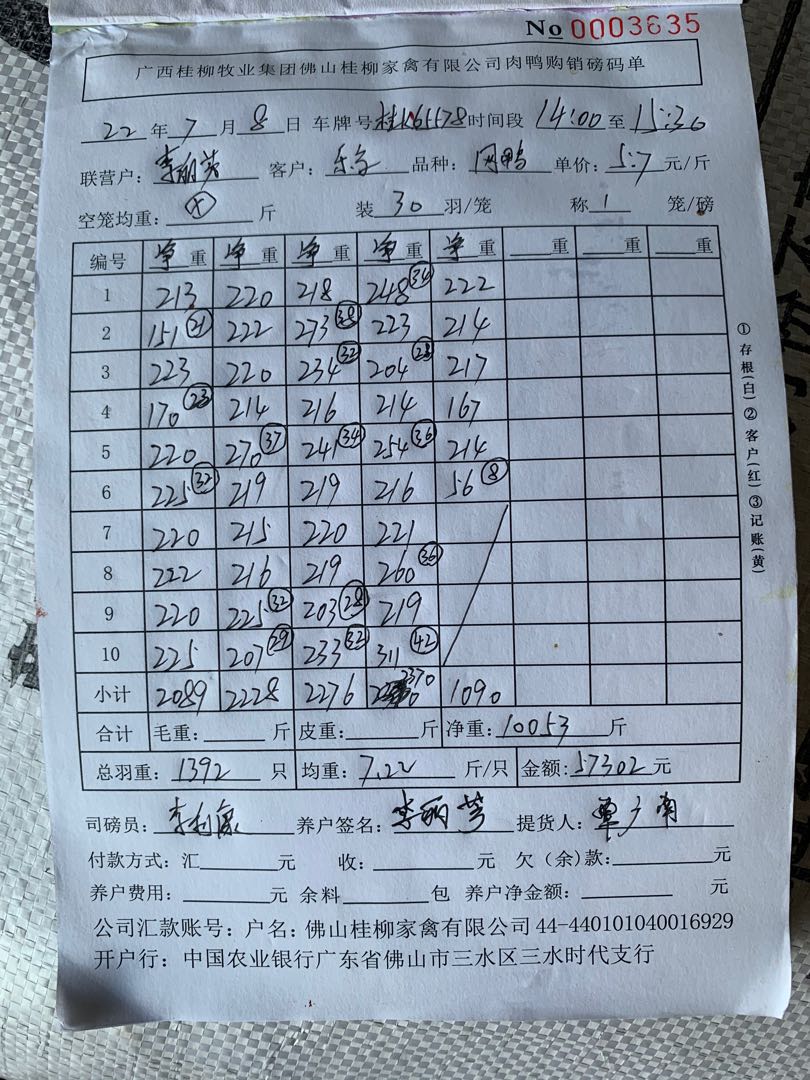 No 0003635
广西桂柳牧业集团佛山桂柳家禽有限公司肉鸭购销磅码单
22 年 7 月 8 日 车牌号 桂K65578 时间段 14:00 至 15:30
联营户: 李丽芳 客户: 品种: 肉鸭 单价: 5.7 元/斤
空笼均重: 斤 装 30 羽/笼 称 1 笼/磅
编号 净重 净重 净重 净重 净重 重 重 重
1 213 220 218 248 (34) 222
2 151 (21) 222 273 (38) 223 214
3 223 220 234 (32) 204 (28) 217
4 170 (23) 214 216 214 167
5 220 270 (37) 241 (34) 254 (36) 214
6 225 (32) 219 219 216 56 (8)
7 220 215 220 221
8 222 216 219 260 (36)
9 220 225 (32) 203 (28) 219
10 225 207 (29) 233 (32) 311 (42)
小计 2089 2228 2276 2370 1090
合计 毛重: 斤 皮重: 斤 净重: 10053 斤
总羽重: 1392 只 均重: 7.22 斤/只 金额: 57302 元
司磅员: 李利康 养户签名: 李丽芳 提货人: 覃广南
付款方式: 汇 元 收: 元 欠(余)款: 元
养户费用: 元 余料 包 养户净金额: 元
公司汇款账号: 户名: 佛山桂柳家禽有限公司 44-440101040016929
开户行: 中国农业银行广东省佛山市三水区三水时代支行
①存根(白)②客户(红)③记账(黄)